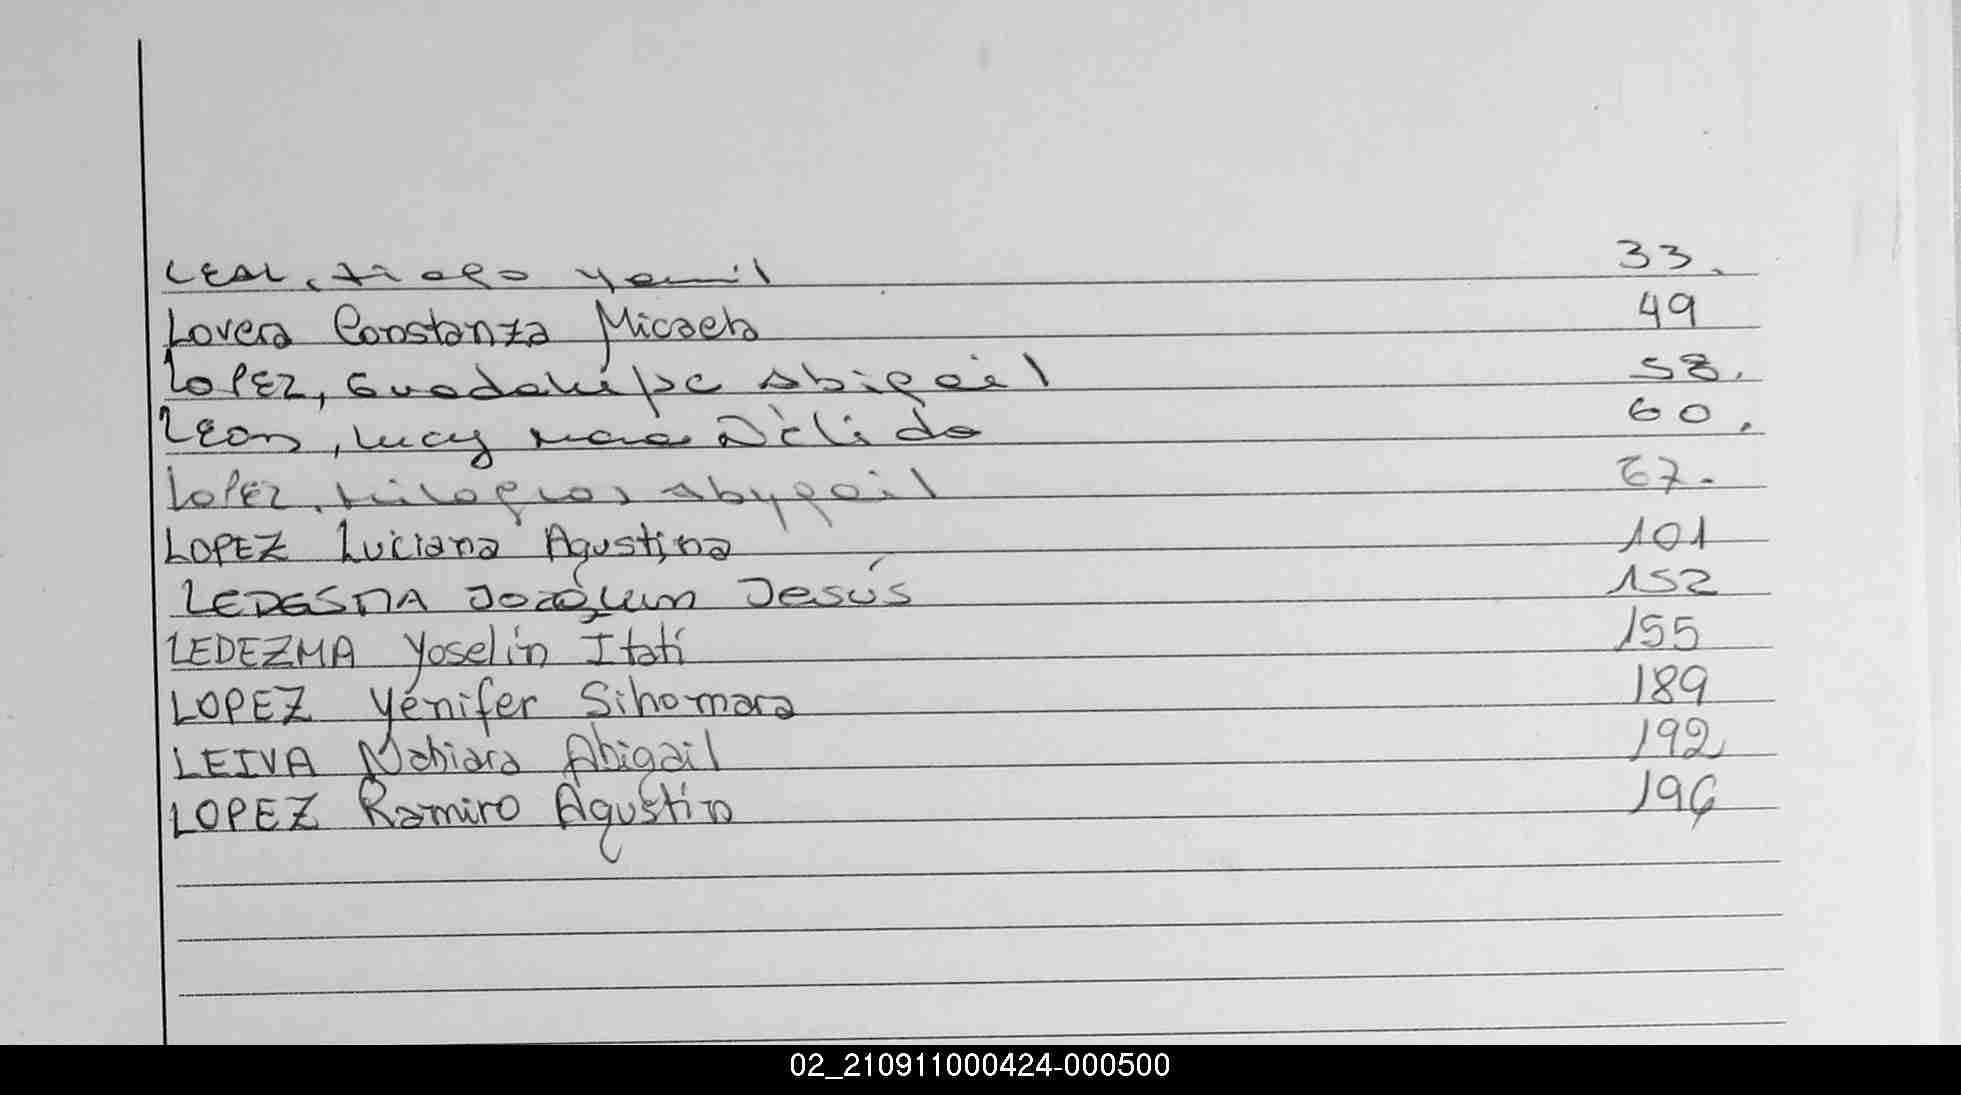 LEAL, tiago yamil 33.
Lovera Constanza Micaela 49
LOPEZ, Guadalupe Abigail 58.
Leon, Lucy mara Dèlida 60.
LoPEZ, Milagros abygail 67.
LOPEZ Luciana Agustina 101
LEDESMA Joaquin Jesús 152
LEDEZMA Yoselin Itatí 155
LOPEZ Yénifer Sihomara 189
LEIVA Nahiara Abigail 192
LOPEZ Ramiro Agustín 196
02_210911000424-000500